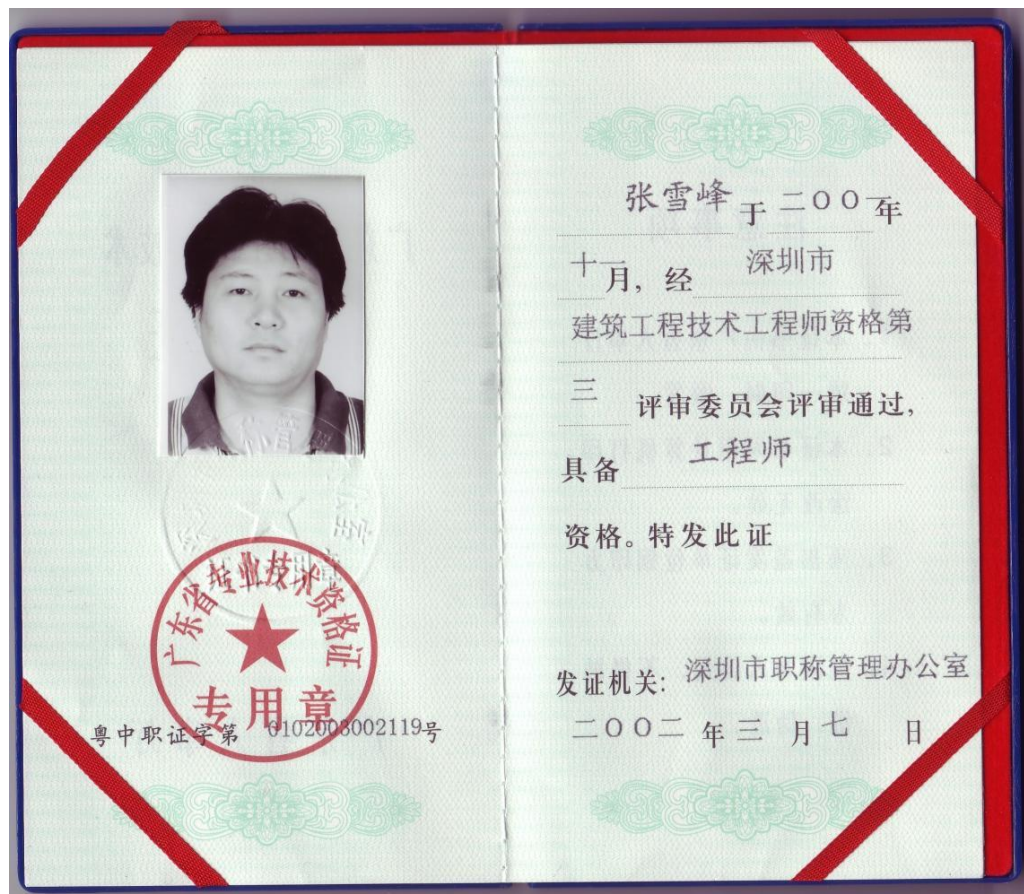 广东省专业技术资格证
专用章
粤中职证字第 0102003002119号
张雪峰于二〇〇一年
十一月，经深圳市
建筑工程技术工程师资格第
三评审委员会评审通过，
具备工程师
资格。特发此证
发证机关：深圳市职称管理办公室
二〇〇二年三月七日